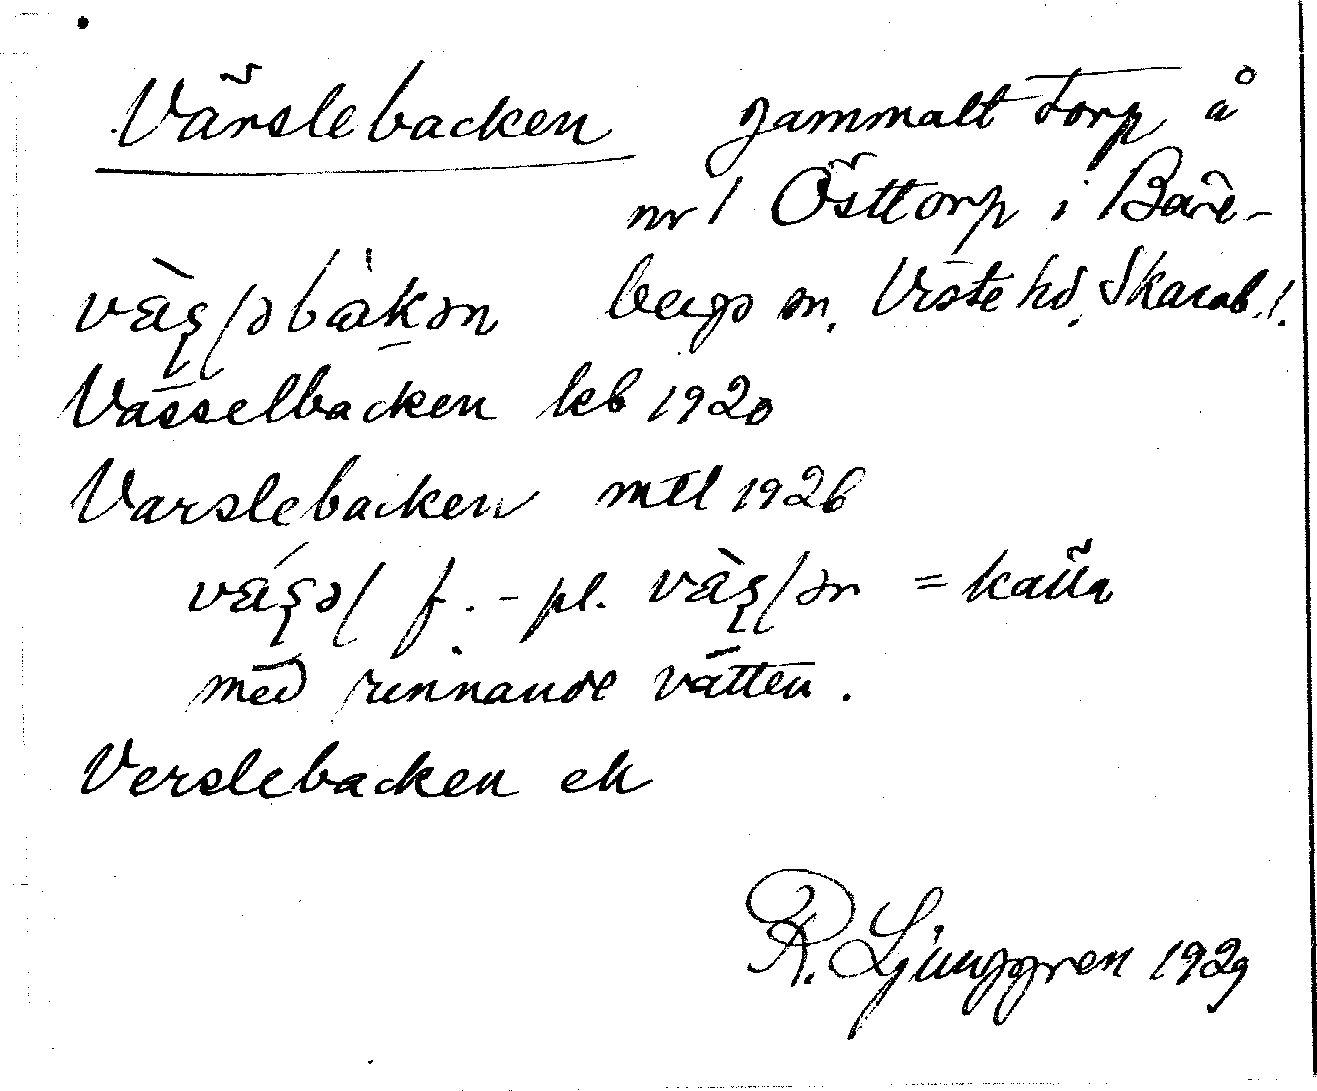 Värslebacken gammalt torp å
nr 1 Östtorp i Bare-
bergs sn. Viste hd. Skarab. l.
Vässelbacken kb 1920
Varslebacken mtl 1926
f. - pl. = källa
med rinnande vatten.
Verslebacken ek
R. Ljunggren 1929